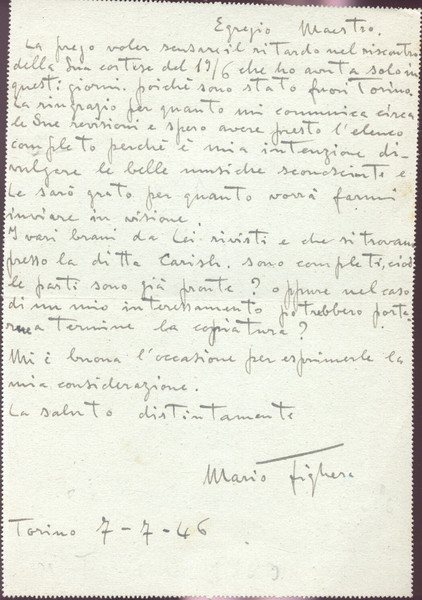 Egregio Maestro.
La prego voler scusare il ritardo nel riscontro
della Sua cortese del 19/6 che ho avuta solo in
questi giorni. poichè sono stato fuori Torino.
La ringrazio per quanto mi comunica circa
le Sue revisioni e spero avere presto l'elenco
completo perchè è mia intenzione di-
vulgere le belle musiche sconosciute e
Le sarò grato per quanto vorrà farmi
inviare in visione.
I vari brani da Lei rivisti e che si trovano
presso la ditta Carish. sono completi, cioè
le parti sono già pronte? oppure nel caso
di un mio interessamento potrebbero porta
re a termine la copiatura?
Mi è buona l'occasione per esprimerle la
mia considerazione.
La saluto distintamente
Mario Fighera
Torino 7-7-46